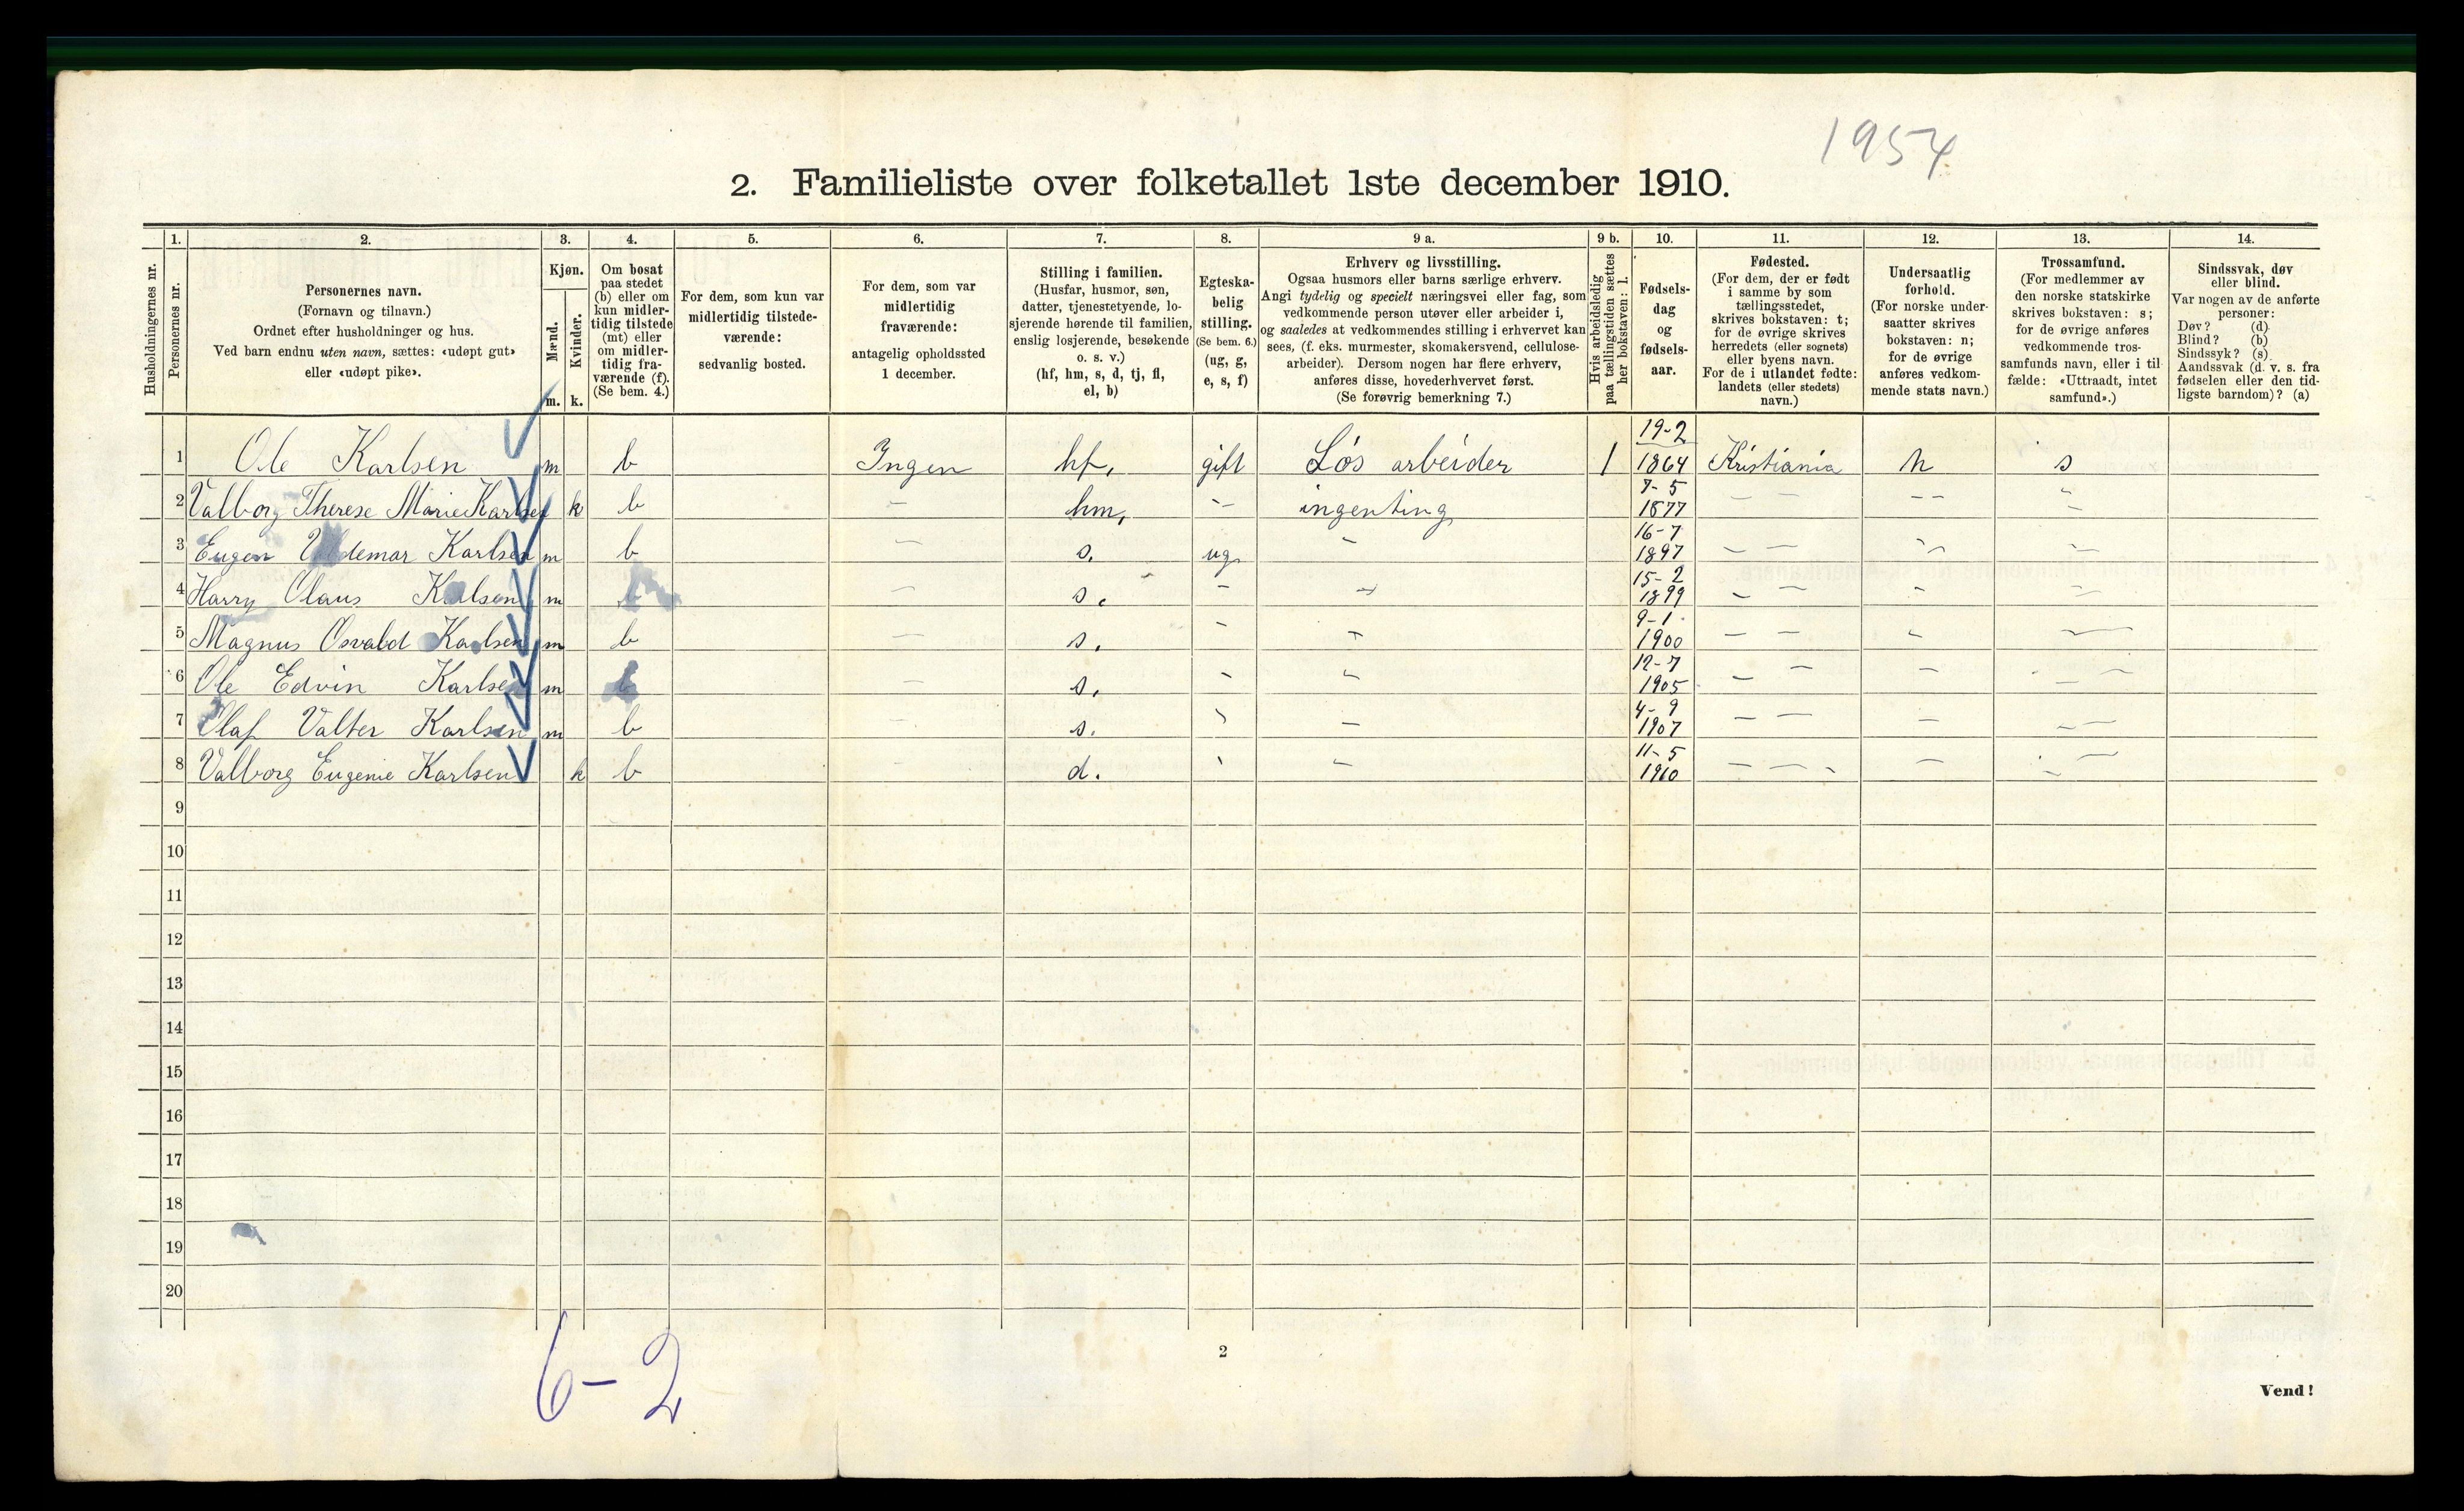 1954
2. Familieliste over folketallet 1ste december 1910.
Husholdningernes nr.
1.
Personernes nr.
2.
Personernes navn.
(Fornavn og tilnavn.)
Ordnet efter husholdninger og hus.
Ved barn endnu uten navn, sættes: «udøpt gut»
eller «udøpt pike».
3.
Kjøn.
Mænd.
Kvinder.
m. k.
4.
Om bosat
paa stedet
(b) eller om
kun midler-
tidig tilstede
(mt) eller
om midler-
tidig fra-
værende (f).
(Se bem. 4.)
5.
For dem, som kun var
midlertidig tilstede-
værende:
sedvanlig bosted.
6.
For dem, som var
midlertidig
fraværende:
antagelig opholdssted
1 december.
7.
Stilling i familien.
(Husfar, husmor, søn,
datter, tjenestetyende, lo-
sjerende hørende til familien,
enslig losjerende, besøkende
o. s. v.)
(hf, hm, s, d, tj, fl,
el, b)
8.
Egteska-
belig
stilling.
(Se bem. 6.)
(ug, g,
e, s, f)
9 a.
Erhverv og livsstilling.
Ogsaa husmors eller barns særlige erhverv.
Angi tydelig og specielt næringsvei eller fag, som
vedkommende person utøver eller arbeider i,
og saaledes at vedkommendes stilling i erhvervet kan
sees, (f. eks. murmester, skomakersvend, cellulose-
arbeider). Dersom nogen har flere erhverv,
anføres disse, hovederhvervet først.
(Se forøvrig bemerkning 7.)
9 b.
Hvis arbeidsledig
paa tællingstiden sættes
her bokstaven: l.
10.
Fødsels-
dag
og
fødsels-
aar.
11.
Fødested.
(For dem, der er født
i samme by som
tællingsstedet,
skrives bokstaven: t;
for de øvrige skrives
herredets (eller sognets)
eller byens navn.
For de i utlandet fødte:
landets (eller stedets)
navn.)
12.
Undersaatlig
forhold.
(For norske under-
saatter skrives
bokstaven: n;
for de øvrige
anføres vedkom-
mende stats navn.)
13.
Trossamfund.
(For medlemmer av
den norske statskirke
skrives bokstaven: s;
for de øvrige anføres
vedkommende tros-
samfunds navn, eller i til-
fælde: «Uttraadt, intet
samfund».)
14.
Sindssvak, døv
eller blind.
Var nogen av de anførte
personer:
Døv? (d)
Blind? (b)
Sindssyk? (s)
Aandssvak (d. v. s. fra
fødselen eller den tid-
ligste barndom)? (a)
1 Ole Karlsen m b Ingen hf, gift Løs arbeider l 19-2 1864 Kristiania n s
2 Valborg Therese Marie Karlsen k b - hm, - ingenting 7-5 1877 - - - - -
3 Eugen Valdemar Karlsen m b - s. ug - 16-7 1897 - - - -
4 Harry Olaus Karlsen m b - s. - - 15-2 1899 - - - -
5 Magnus Osvald Karlsen m b - s. - - 9-1 1900 - - - -
6 Ole Edvin Karlsen m b - s. - - 12-7 1905 - - - -
7 Olaf Valter Karlsen m b - s. - - 4-9 1907 - - - -
8 Valborg Eugenie Karlsen k b - d. - - 11-5 1910 - - - -
9
10
11
12
13
14
15
16
17
18
19
20
6-2
2
Vend!